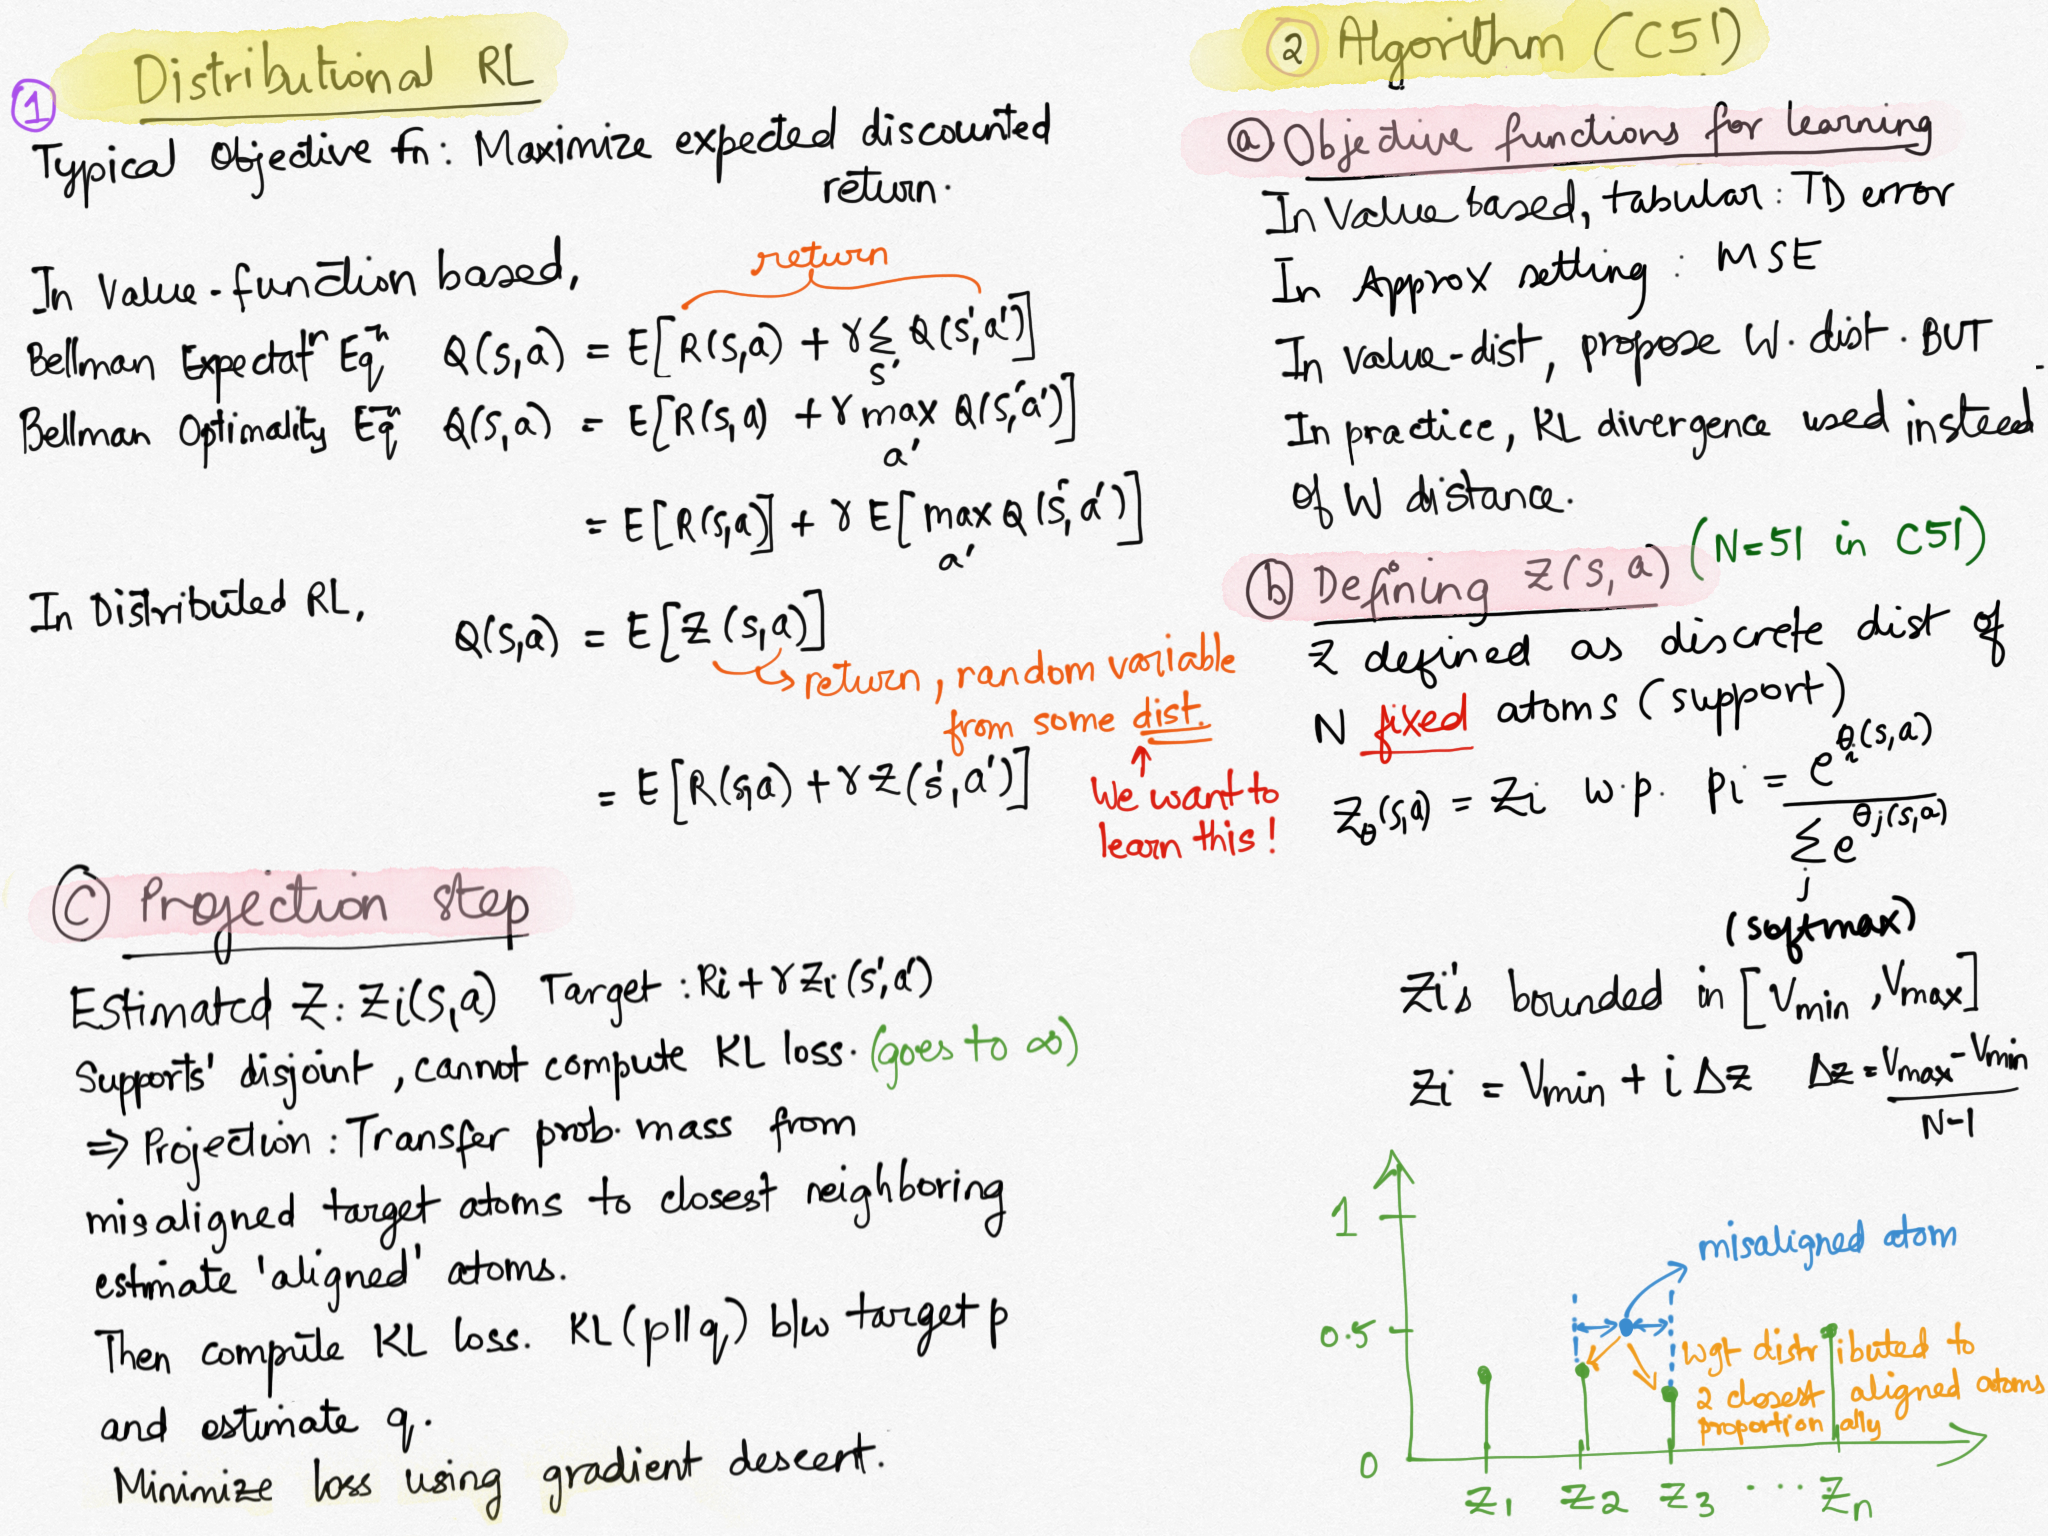 ① Distributional RL
Typical Objective fn: Maximize expected discounted
return.
In Value-function based,
return
Bellman Expectatⁿ Eqⁿ Q(s,a) = E[R(s,a) + γ Σ_s' Q(s',a')]
Bellman Optimality Eqⁿ Q(s,a) = E[R(s,a) + γ max_a' Q(s',a')]
= E[R(s,a)] + γ E[max_a' Q(s',a')]
In Distributed RL,
Q(s,a) = E[Z(s,a)]
return, random variable
from some dist.
= E[R(s,a) + γ Z(s',a')]
We want to
learn this!
② Algorithm (C51)
ⓐ Objective functions for learning
In Value based, tabular : TD error
In Approx setting : MSE
In value-dist, propose W. dist. BUT
In practice, KL divergence used instead
of W distance.
ⓑ Defining Z(s,a) (N=51 in C51)
Z defined as discrete dist of
N fixed atoms (support)
Z_θ(s,a) = Zi w.p. pi = e^θi(s,a) / Σ_j e^θj(s,a)
(softmax)
Zi's bounded in [Vmin, Vmax]
Zi = Vmin + i Δz Δz = Vmax - Vmin / N-1
ⓒ Projection step
Estimated Z: Zi(s,a) Target : Ri + γ Zi(s',a')
Supports' disjoint, cannot compute KL loss. (goes to ∞)
⇒ Projection : Transfer prob. mass from
misaligned target atoms to closest neighboring
estimate 'aligned' atoms.
Then compute KL loss. KL(p||q) b/w target p
and estimate q.
Minimize loss using gradient descent.
1
misaligned atom
0.5
wgt distributed to
2 closest aligned atoms
proportionally
0
Z1 Z2 Z3 ... Zn